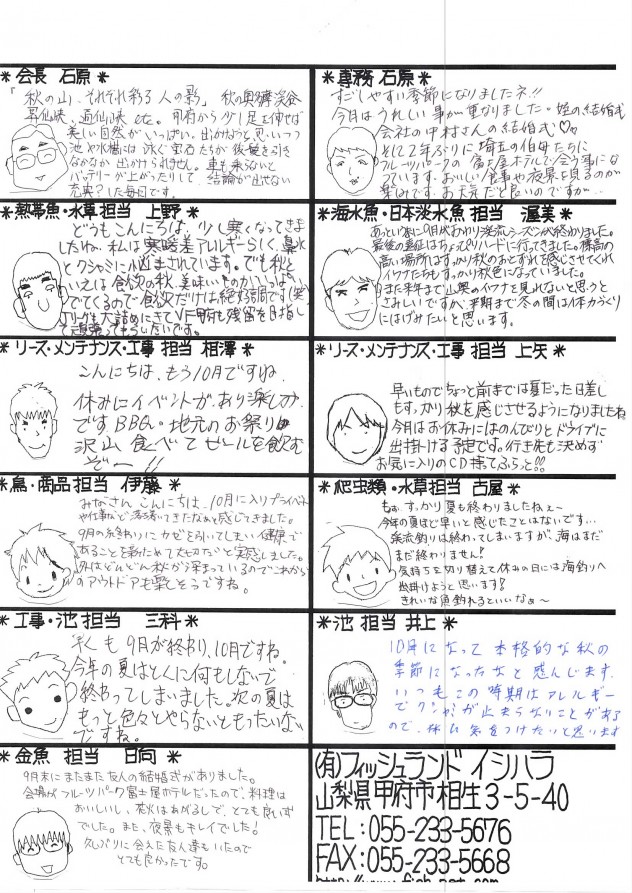 ＊会長 石原＊
「秋の山、それぞれ彩る 人の影」 秋の奥
昇仙峡、 etc. 甲府から少し足を伸せば
美しい自然がいっぱい。出かねようと思いつつ
池や水槽には泳ぐ宝石たちが後髪を引き
なかなか出かけられません。車も乗らないと
バッテリーが上がったりして 結論が出せない
充実?した毎日です。
＊専務 石原＊
すごしやすい季節になりましたネ!!
今月はうれしい事が重なりました。姪の結婚式
会社の中村さんの結婚式♡
そして2年ぶりに埼玉の伯母たちに
フルーツパークの富士屋ホテルで会う事になっ
ています。おいしい食事や夜景を見るのが
楽しみです。お天気だと良いのですが…
＊熱帯魚・水草担当 上野＊
どうもこんにちは、少し寒くなってきま
したね。私は寒暖差アレルギーらしく、鼻水
とクシャミに悩まされています。でも秋と
いえば食欲の秋、美味いものがいっぱい
でてくるので食欲だけは絶好調です(笑)
Jリーグも大詰めにきてVF甲府も残留を目指し
て頑張ってもらいたいです。
＊海水魚・日本淡水魚 担当 渥美＊
あっという間に9月も終わり渓流シーズンが終わりました。
最後の週はちょっぴりハードに行ってきました。標高の
高い場所はすっかり秋のおとずれを感じさせてくれ
イワナたちもすっかり秋色になっていました。
また来年まで山奥のイワナを見れないと思うと
さみしいですが、来期まで冬の間は体力づくり
にはげみたいと思います。
＊リース・メンテナンス・工事 担当 相澤＊
こんにちは、もう10月ですね。
休みにイベントがあり楽しみ
です BBQ・地元のお祭り
沢山食べてビールを飲む
ぞー!!
＊リース・メンテナンス・工事 担当 上矢＊
早いものでちょっと前までは夏だった日差し
もすっかり秋を感じさせるようになりましたね
今月はお休みにはのんびりとドライブに
出掛ける予定です。行き先も決めず
お気に入りのCD持ってふらっと!!
＊鳥・商品担当 伊藤＊
みなさんこんにちは、10月に入りプライベート
や仕事など落ち着いてきたなぁと感じてきました。
9月の終わりにカゼを引いてしまい健康で
あることを改めて大切だと実感しました。
外はどんどん秋が深まっているのでこれから
のアウトドアも楽しそうですね。
＊爬虫類・水草担当 古屋＊
もぉ、すっかり夏も終わりましたねぇ～
今年の夏ほど早いと感じたことはないです…
渓流釣りは終わってしまいますが、海はまだ
まだ終わりません!
気持ちを切り替えて休みの日には海釣りへ
出掛けようと思います!
きれいな魚釣れるといいなぁ～
＊工事・池 担当 三科＊
早くも9月が終わり、10月ですね。
今年の夏はとくに何もしないで
終わってしまいました。次の夏は
もっと色々とやらないともったいない
ですね。
＊池 担当 井上＊
10月になって本格的な秋の
季節になったなと感じます。
いつもこの時期はアレルギー
でクシャミが止まらないことがある
ので、体に気をつけたいと思います
＊金魚 担当 日向＊
9月末にまたまた友人の結婚式がありました。
会場がフルーツパーク富士屋ホテルだったので、料理は
おいしいし、花火はあがるしで、とても良い式
でした。また、夜景もキレイでした!
久しぶりに会えた友達もいたので
とても良かったです。
(有)フィッシュランド イシハラ
山梨県甲府市相生3-5-40
TEL：055-233-5676
FAX：055-233-5668